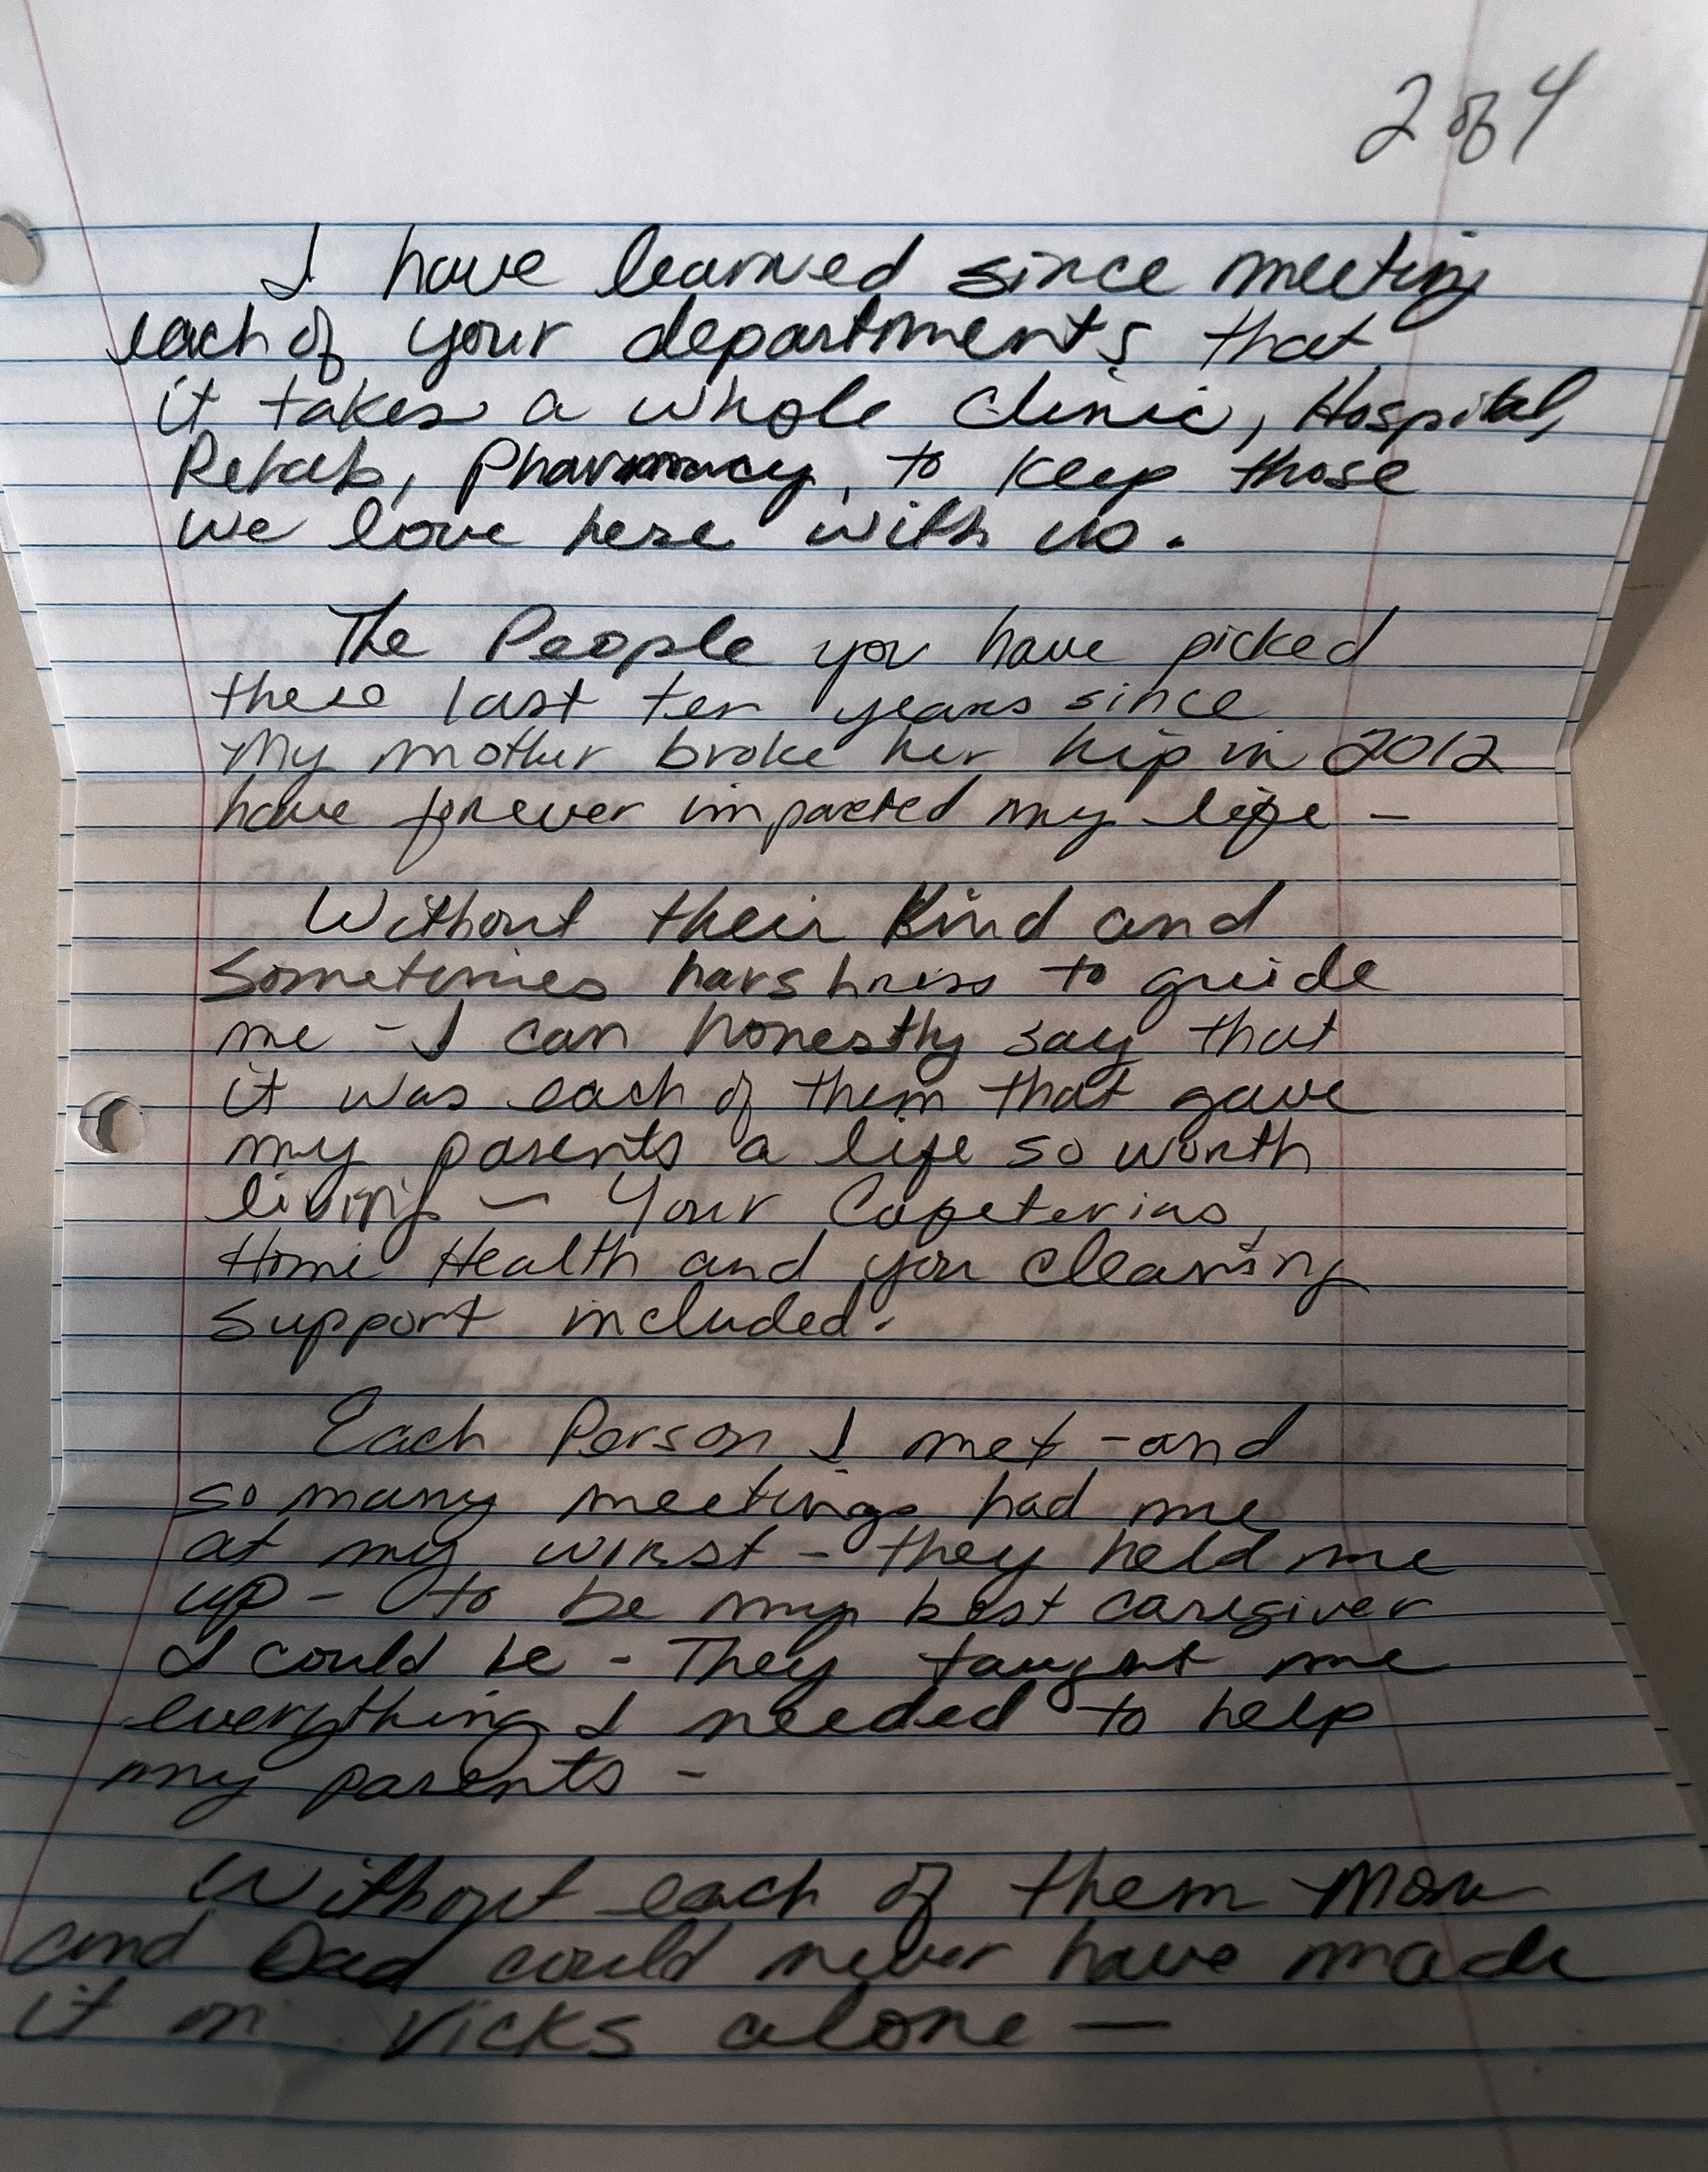 2 of 4
I have learned since meeting
each of your departments that
it takes a whole Clinic, Hospital,
Rehab, Pharmacy, to keep those
we love here with us.
The People you have picked
these last ten years since
My mother broke her hip in 2012
have forever impacted my life -
Without their Kind and
Sometimes harshness to guide
me - I can honestly say that
it was each of them that gave
my parents a life so worth
living - Your Cafeterias,
Home Health and your cleaning
support included.
Each Person I met - and
so many meetings had me
at my worst - they held me
up - to be my best caregiver
I could be - They taught me
everything I needed to help
my parents -
Without each of them Mom
and Dad could never have made
it on Vicks alone -